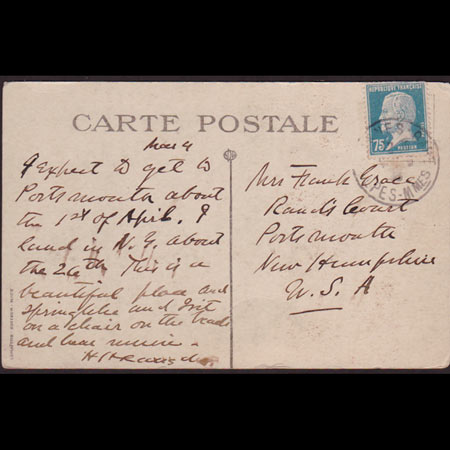 CARTE POSTALE
RÉPUBLIQUE FRANÇAISE
75c
POSTES
PES-MMES
I expect to get to
Portsmouth about
the 1st of April. I
land in N.Y. about
the 24th This is a
beautiful place and
springlike and I sit
on a chair on the
and hear music.
Mrs Frank Grace
Rand's Court
Portsmouth
New Hampshire
U.S.A